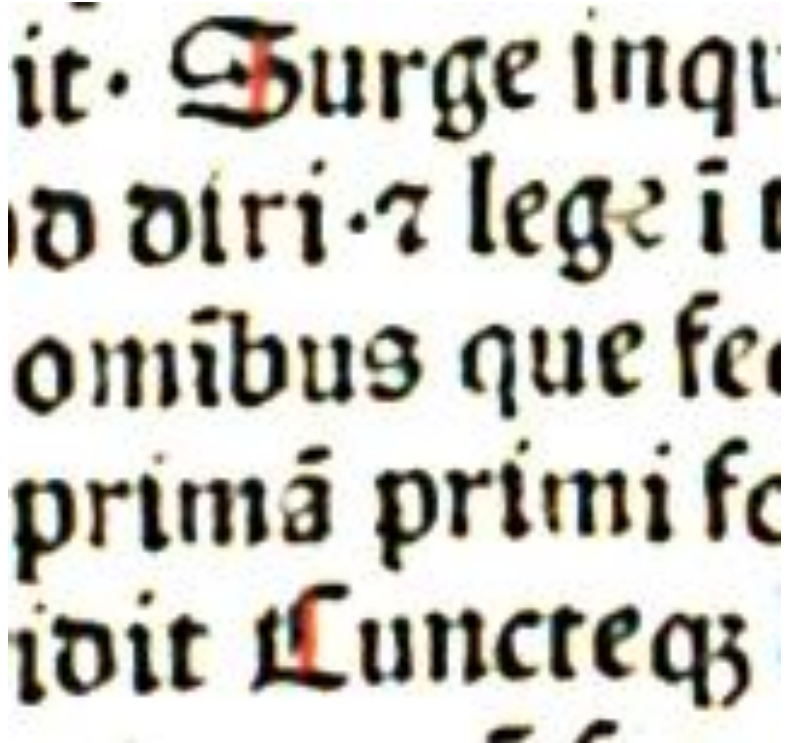 it· Surge inqu
od dixi·⁊ lege ī
omībus que fe
primā primi fo
idit Cuncteqꝫ